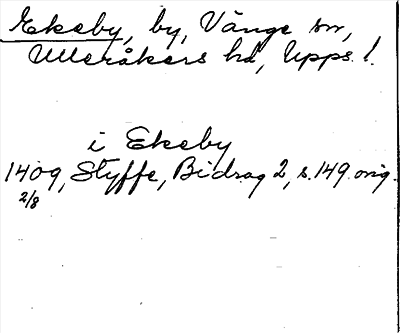 Ekeby, by, Vänge sn,
Ulleråkers hd, Upps. l.
i Ekeby
1409, Styffe, Bidrag 2, s. 149. orig.
2/8